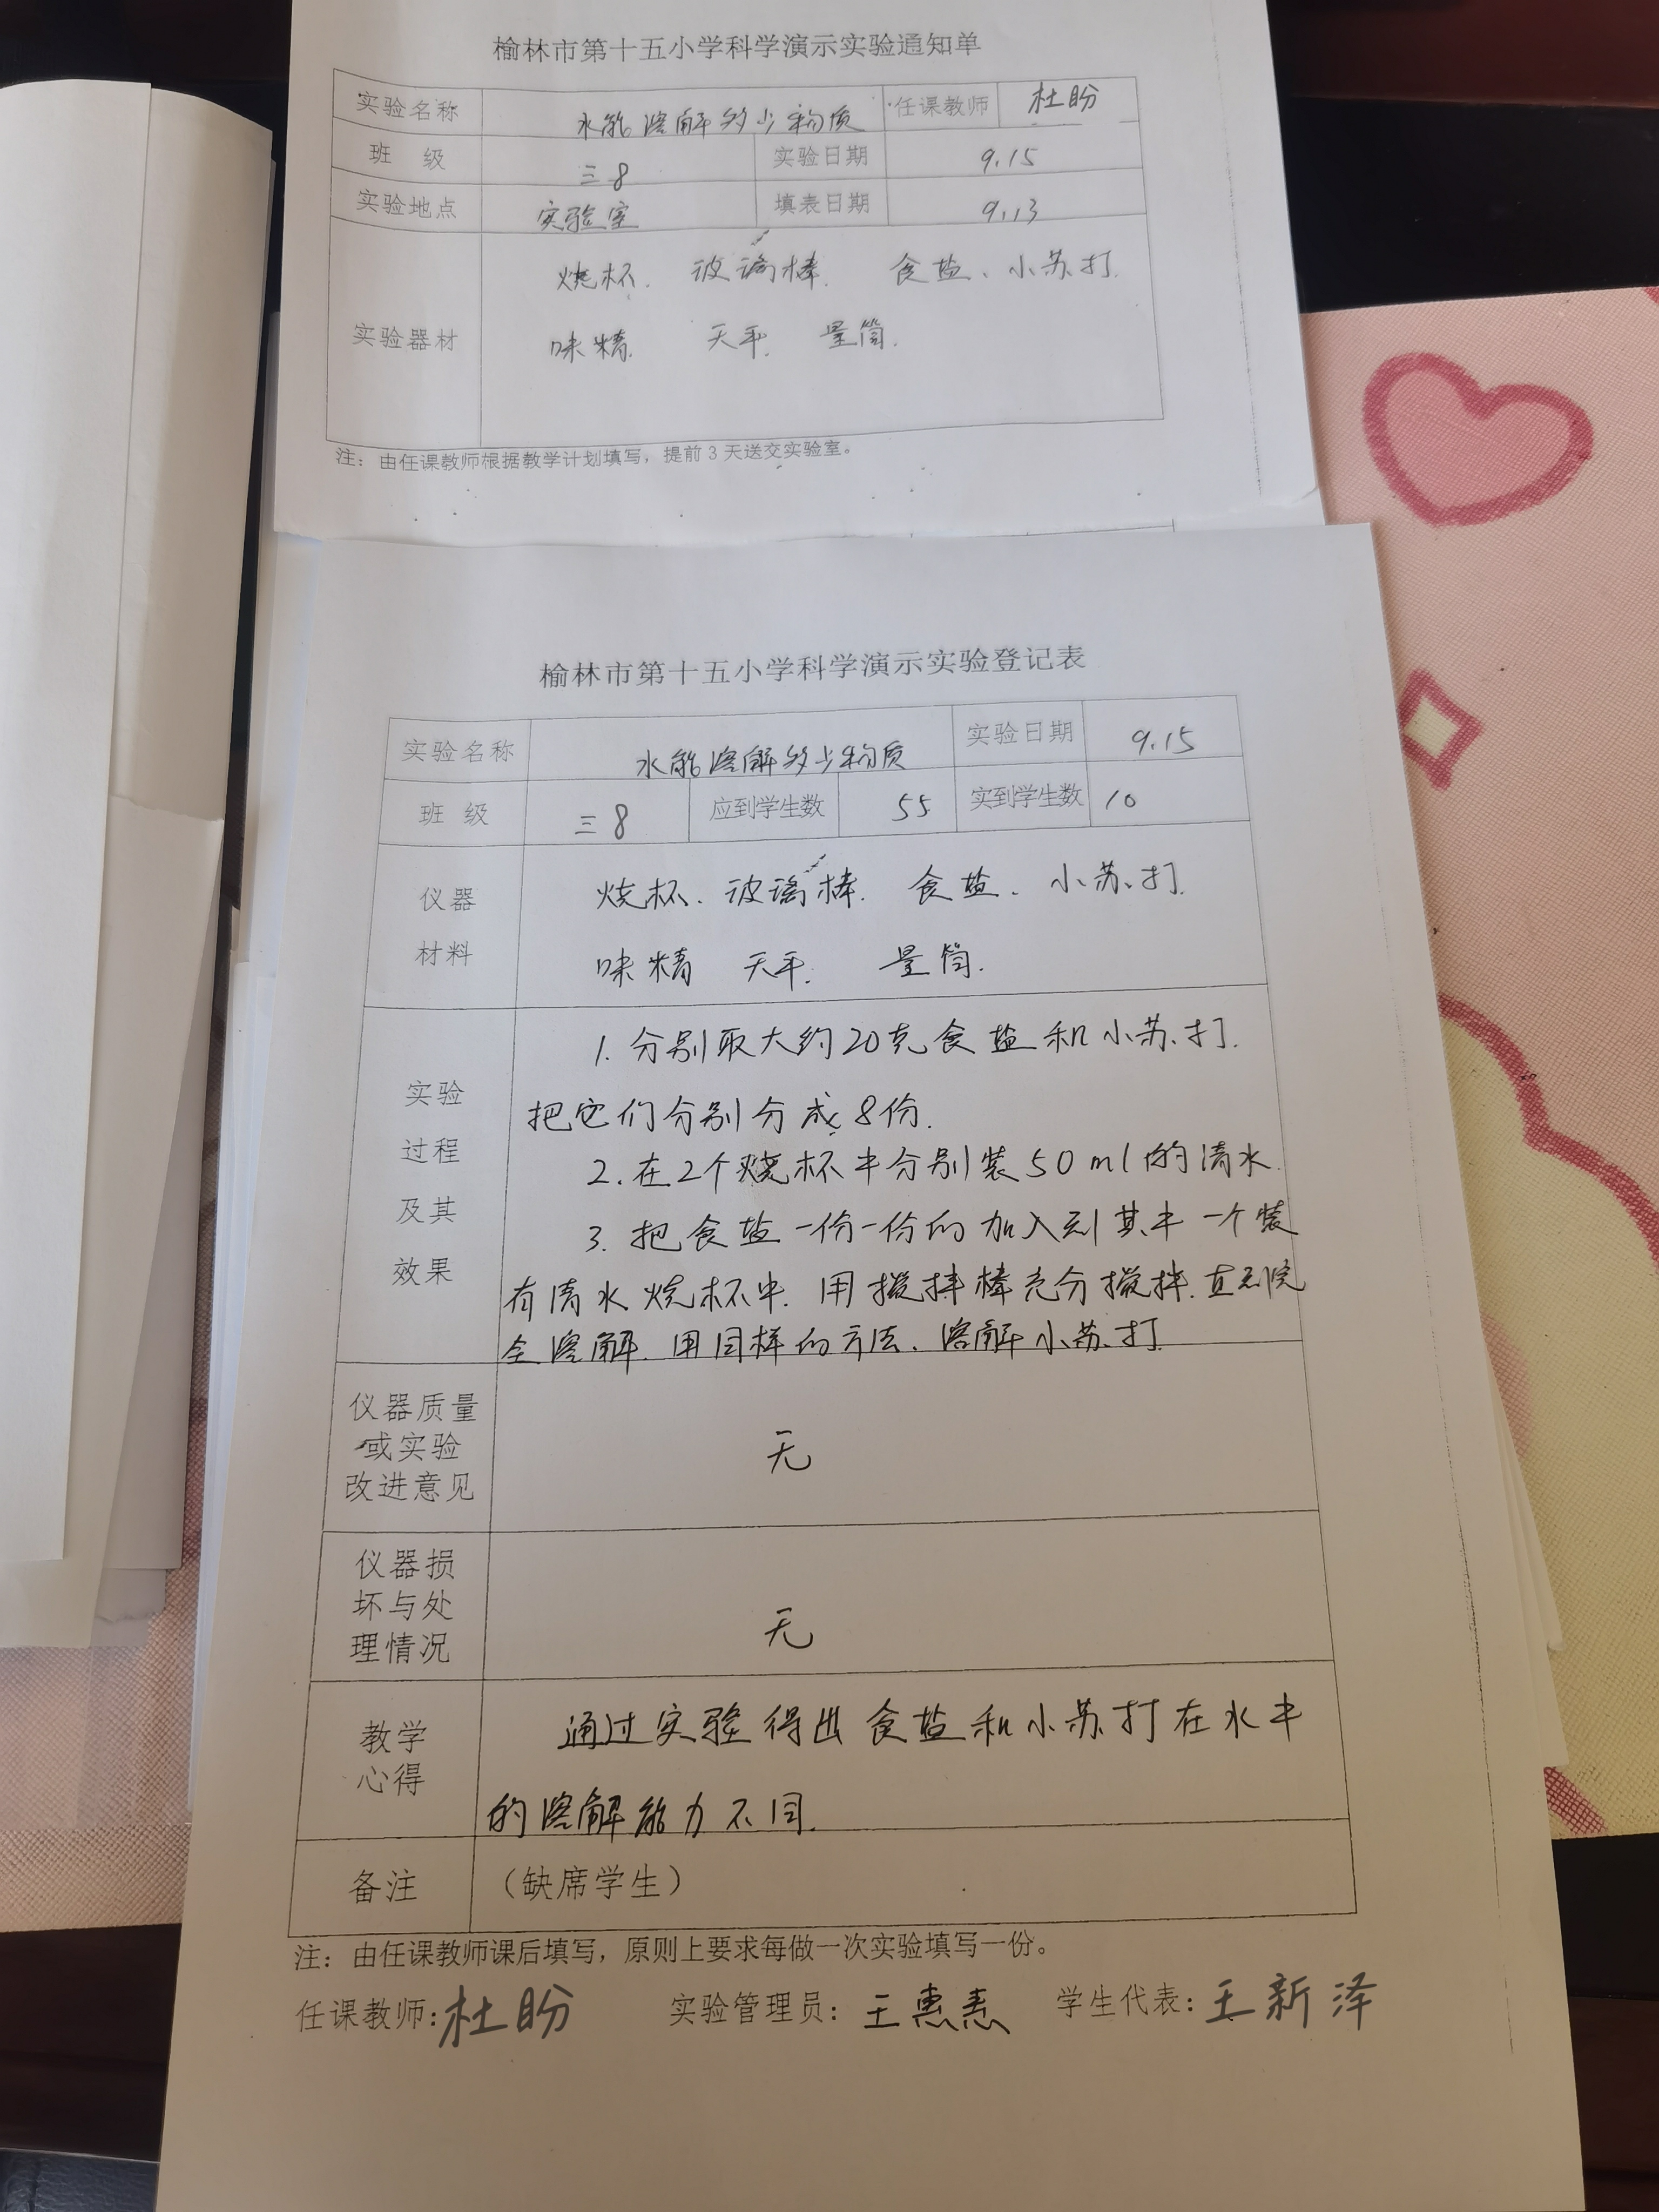 榆林市第十五小学科学演示实验通知单
实验名称 水能溶解多少物质 任课教师 杜盼
班 级 三8 实验日期 9.15
实验地点 实验室 填表日期 9.13
烧杯. 玻璃棒. 食盐、小苏打.
实验器材 味精. 天平. 量筒.
注：由任课教师根据教学计划填写，提前3天送交实验室。
榆林市第十五小学科学演示实验登记表
实验名称 水能溶解多少物质 实验日期 9.15
班 级 三8 应到学生数 55 实到学生数 10
仪器 烧杯. 玻璃棒. 食盐. 小苏打.
材料 味精 天平. 量筒.
1. 分别取大约20克食盐和小苏打.
实验 把它们分别分成8份.
过程 2. 在2个烧杯中分别装50ml的清水.
及其 3. 把食盐一份一份的加入到其中一个装
效果 有清水烧杯中. 用搅拌棒充分搅拌. 直到完
全溶解. 用同样的方法. 溶解小苏打.
仪器质量
或实验 无
改进意见
仪器损
坏与处 无
理情况
教学 通过实验得出食盐和小苏打在水中
心得 的溶解能力不同.
备注 （缺席学生）
注：由任课教师课后填写，原则上要求每做一次实验填写一份。
任课教师：杜盼 实验管理员：王惠惠 学生代表：王新泽